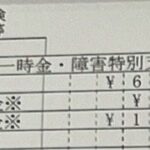 一時金・障害特別
¥6
金※ ¥
金※ ¥1